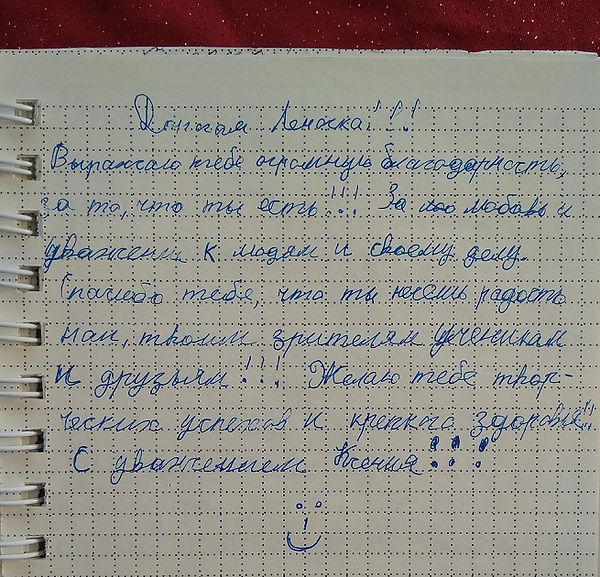 Дорогая Леночка!!!
Выражаю тебе огромную благодарность,
за то, что ты есть!!! За любовь и
уважение к людям и своему делу.
Спасибо тебе, что ты несёшь радость
нам, твоим зрителям ученикам
и друзьям!!! Желаю тебе твор-
ческих успехов и крепкого здоровья!!!
С уважением Ксения!!!